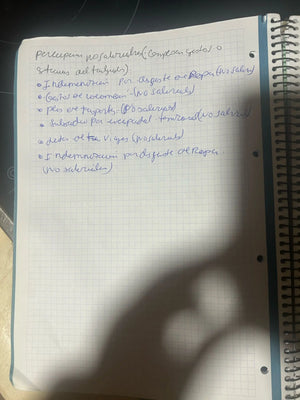 percepciones no salariales (compensar gastos o
del trabajo)
• Indemnización por desgaste de Ropa (No salarial)
• Gastos de locomoción (No salarial)
• plus de transporte (No salarial)
• Subsidio por incapacidad temporal (No salarial)
• dietas de viajes (No salarial)
• Indemnización por desgaste de Ropa
(No salarial)